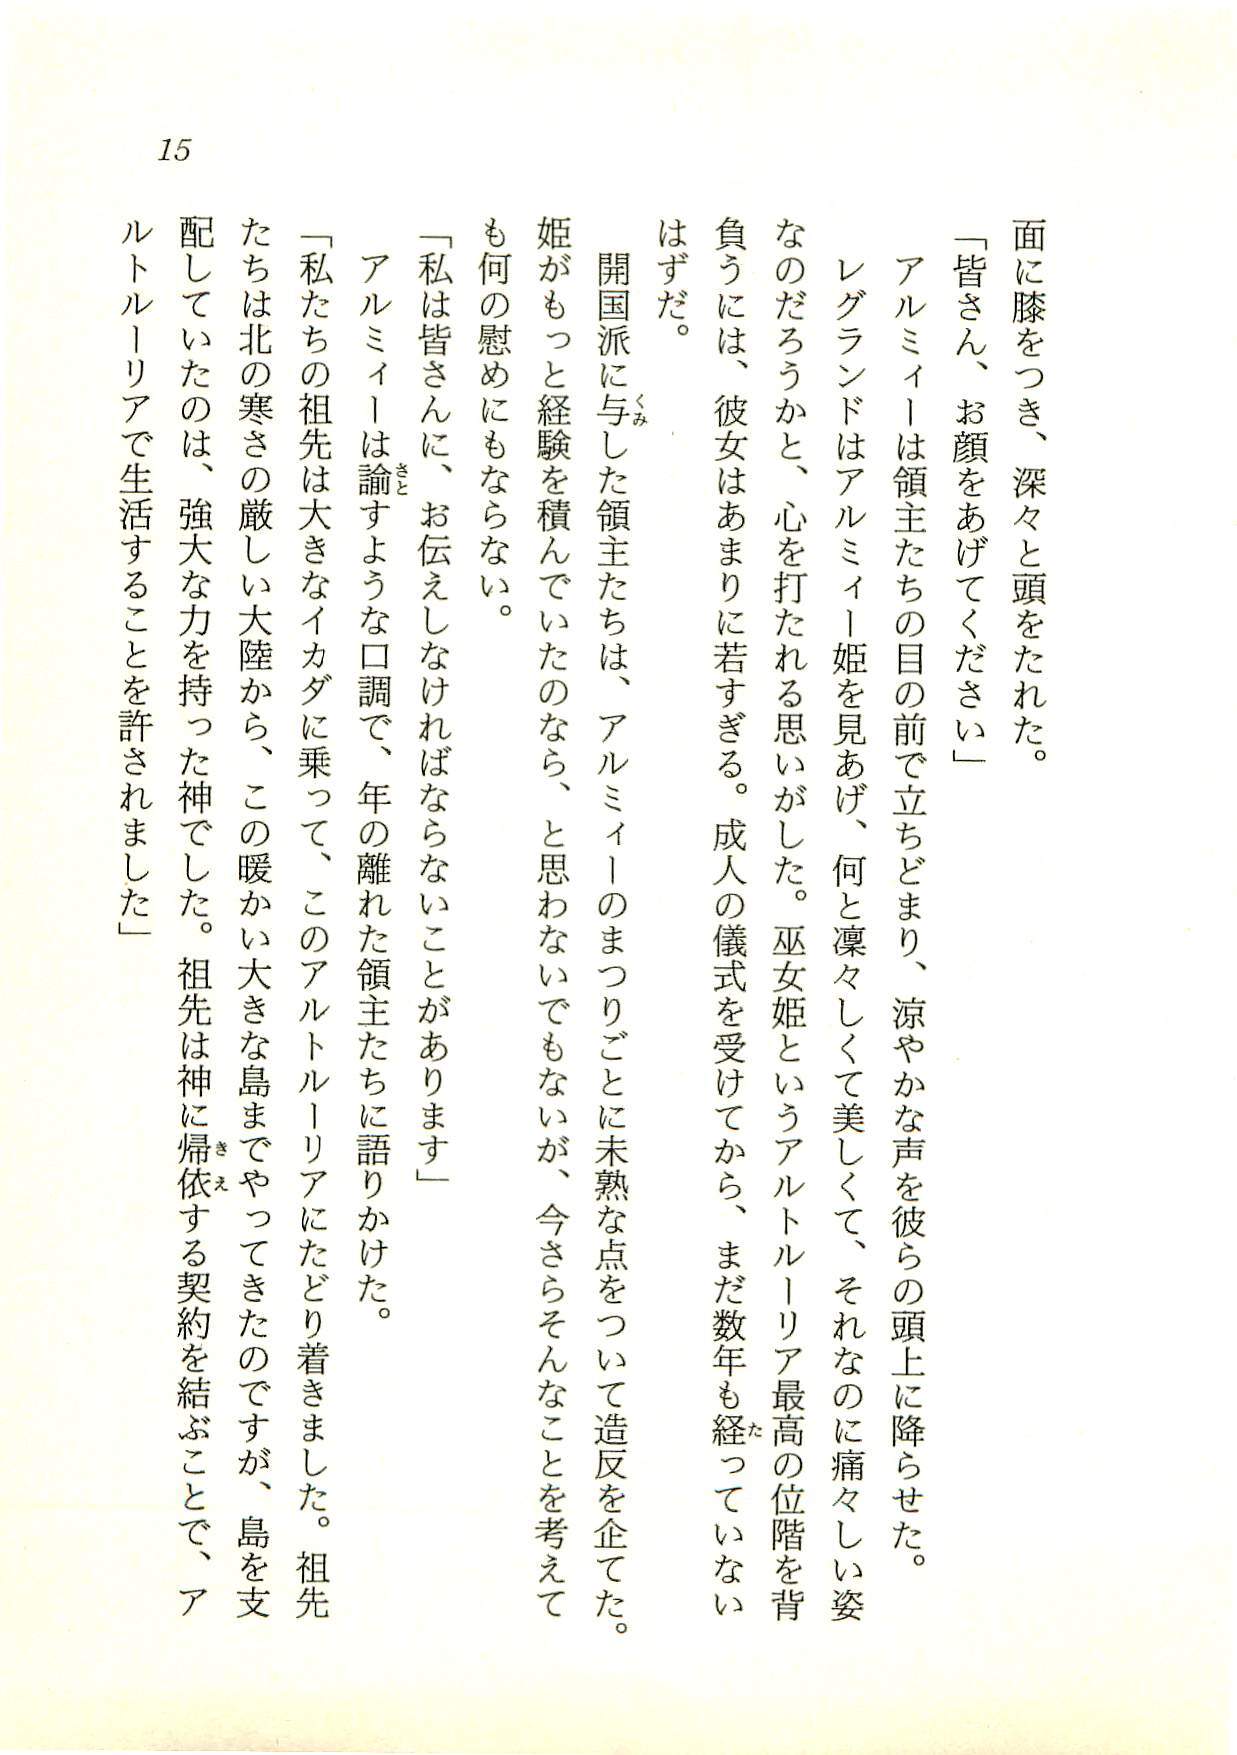 面に膝をつき、深々と頭をたれた。
「皆さん、お顔をあげてください」
アルミィーは領主たちの目の前で立ちどまり、涼やかな声を彼らの頭上に降らせた。
レグランドはアルミィー姫を見あげ、何と凜々しくて美しくて、それなのに痛々しい姿
なのだろうかと、心を打たれる思いがした。巫女姫というアルトルーリア最高の位階を背
負うには、彼女はあまりに若すぎる。成人の儀式を受けてから、まだ数年も経っていない
はずだ。
開国派に与した領主たちは、アルミィーのまつりごとに未熟な点をついて造反を企てた。
姫がもっと経験を積んでいたのなら、と思わないでもないが、今さらそんなことを考えて
も何の慰めにもならない。
「私は皆さんに、お伝えしなければならないことがあります」
アルミィーは諭すような口調で、年の離れた領主たちに語りかけた。
「私たちの祖先は大きなイカダに乗って、このアルトルーリアにたどり着きました。祖先
たちは北の寒さの厳しい大陸から、この暖かい大きな島までやってきたのですが、島を支
配していたのは、強大な力を持った神でした。祖先は神に帰依する契約を結ぶことで、ア
ルトルーリアで生活することを許されました」
15